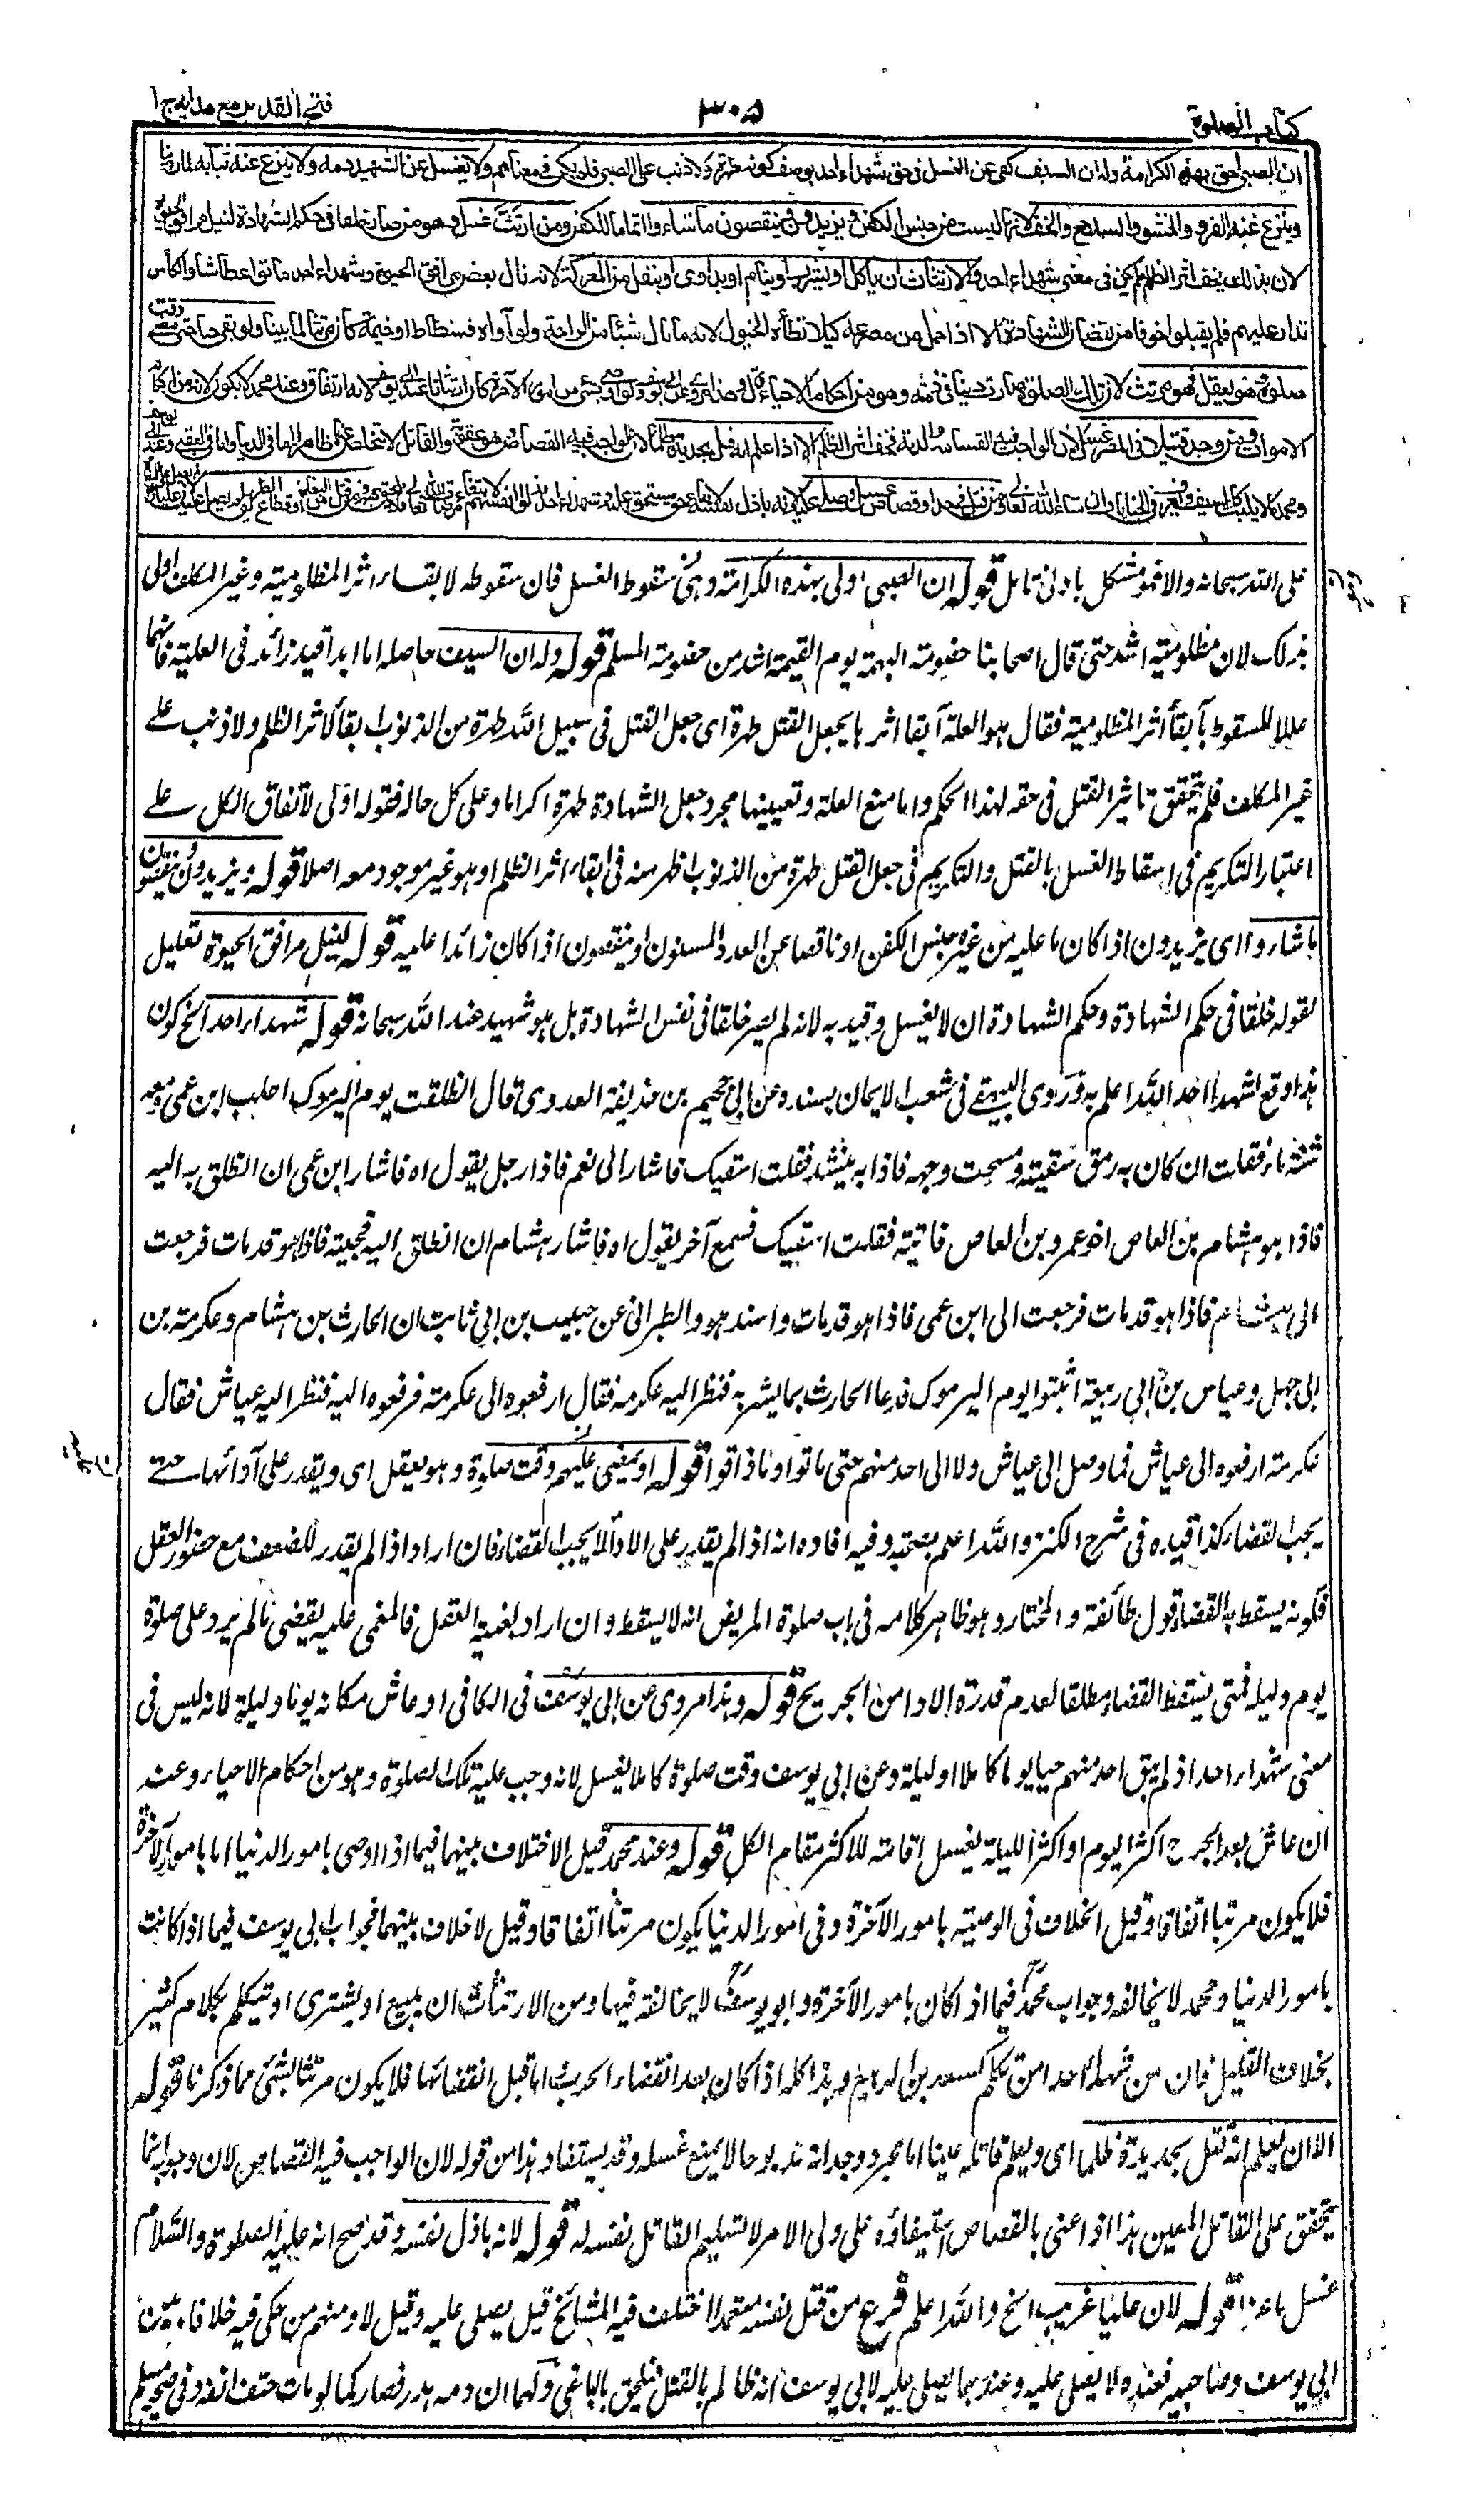 كتاب الصلوة
٣٠٥
فتح القدير مع هدايه ج ا
ان الصبي احق بهذه الكرامة وله ان السيف كفى عن الغسل في حق شهداء احد بوصف كونه طهرة ولا ذنب على الصبي فلم يكن في معناهم ولا يغسل عن الشهيد دمه ولا ينزع عنه ثيابه لما روينا
وينزع عنه الفرو والحشو والسلاح والخف لانها ليست من جنس الكفن ويزيدون وينقصون ما شاءوا اتماما للكفن ومن ارتث غسل وهو من صار خلقا في حكم الشهادة لنيل مرافق الحيوة
لان بذلك يخف اثر الظلم فلم يكن في معنى شهداء احد والارتثاث ان ياكل او يشرب او ينام او يداوى او ينقل من المعركة لانه نال بعض مرافق الحيوة وشهداء احد ماتوا عطاشا والكأس
تدار عليهم فلم يقبلوا خوفا من نقصان الشهادة الا اذا حمل من مصرعه كيلا تطأه الخيول لانه ما نال شيئا من الراحة ولو آواه فسطاط او خيمة كان مرتثا لما بينا ولو بقي حيا حتى مضى وقت
صلوة وهو يعقل فهو مرتث لان تلك الصلوة صارت دينا في ذمته وهو من احكام الاحياء قال وهذا مروي عن ابي يوسف ولو اوصى بشيء من امور الآخرة كان ارتثاثا عند ابي يوسف لانه ارتفاق وعند محمد لا يكون لانه من احكام
الاموات ومن وجد قتيلا في المصر غسل لان الواجب فيه القسامة والدية فخف اثر الظلم الا اذا علم انه قتل بحديدة ظلما لان الواجب فيه القصاص وهو عقوبة والقاتل لا يتخلص عنها ظاهرا اما في الدنيا واما في العقبى وعند ابي يوسف
ومحمد ما لا يلبث كالسيف ويعرف في الجنايات ان شاء الله تعالى ومن قتل في حد او قصاص غسل وصلي عليه لانه باذل نفسه لايفاء حق مستحق عليه وشهداء احد بذلوا انفسهم لابتغاء مرضات الله تعالى فلا يلحق بهم ومن قتل من البغاة او قطاع الطريق لم يصل عليه
على الله سبحانه والا فهو مشكل بادنى تامل قوله ان الصبي اولى بهذه الكرامة وهي سقوط الغسل فان سقوطه لابقاء اثر المظلومية وغير المكلف اولى
بذلك لان مظلوميته اشد حتى قال اصحابنا خصومة البهيمة يوم القيمة اشد من خصومة المسلم قوله وله ان السيف حاصله اما ابداء قيد زائد في العلة فانهما
عللا السقوط بابقاء اثر المظلومية فقال هو العلة ابقاء اثرها بجعل القتل طهرة اي جعل القتل في سبيل الله طهرة من الذنوب ابقاء لاثر الظلم ولا ذنب على
غير المكلف فلم يتحقق تاثير القتل في حقه لهذا الحكم واما منع العلة وتعيينها مجرد جعل الشهادة طهرة اكراما وعلى كل حال فقوله اولى لاتفاق الكل على
اعتبار التكريم في اسقاط الغسل بالقتل والتكريم في جعل القتل طهرة من الذنوب اظهر منه في ابقاء اثر الظلم او هو غير موجود معه اصلا قوله ويزيدون وينقصون
ما شاءوا اي يزيدون اذا كان ما عليه من غير جنس الكفن او ناقصا عن العدد المسنون وينقصون اذا كان زائدا عليه قوله لنيل مرافق الحيوة تعليل
لقوله خلقا في حكم الشهادة وحكم الشهادة ان لا يغسل وقيد به لانه لم يصر خلقا في نفس الشهادة بل هو شهيد عند الله سبحانه قوله شهداء احد الخ كون
هذا وقع لشهداء احد الله اعلم به وروى البيهقي في شعب الايمان بسنده عن ابي جهيم بن حذيفة العدوي قال انطلقت يوم اليرموك اطلب ابن عمي ومعه
شنة ماء فقلت ان كان به رمق سقيته ومسحت وجهه فاذا به ينشد فقلت اسقيك فاشار الي نعم فاذا رجل يقول اه فاشار ابن عمي ان انطلق به اليه
فاذا هو هشام بن العاص اخو عمرو بن العاص فاتيته فقلت اسقيك فسمع آخر يقول اه فاشار هشام ان انطلق اليه فجئته فاذا هو قد مات فرجعت
الى هشام فاذا هو قد مات فرجعت الى ابن عمي فاذا هو قد مات واسند هو والطبراني عن حبيب بن ابي ثابت ان الحارث بن هشام وعكرمة بن
ابي جهل وعياش بن ابي ربيعة اثبتوا يوم اليرموك فدعا الحارث بما يشربه فنظر اليه عكرمة فقال ارفعوه الى عكرمة فرفعوه اليه فنظر اليه عياش فقال
عكرمة ارفعوه الى عياش فما وصل الى عياش ولا الى احد منهم حتى ماتوا وما ذاقوا قوله او يمضي عليهم وقت صلوة وهو يعقل اي ويقدر على آدائها حتى
يجب القضاء كذا قيده في شرح الكنز والله اعلم بصحته وفيه افاده انه اذا لم يقدر على الاداء لا يجب القضاء فان اراد اذا لم يقدر للضعف مع حضور العقل
فكونه يسقط به القضاء قول طائفة والمختار وهو ظاهر كلامه في باب صلوة المريض انه لا يسقط وان اراد لغيبة العقل فالمغمى عليه يقضي ما لم يزد على صلوة
يوم وليلة فمتى يسقط القضاء مطلقا لعدم قدرة الاداء من الجريح قوله وهذا مروي عن ابي يوسف في الكافي او عاش مكانه يوما وليلة لانه ليس في
معنى شهداء احد اذ لم يبق احد منهم حيا يوما كاملا او ليلة وعن ابي يوسف وقت صلوة كاملا يغسل لانه وجب عليه تلك الصلوة وهو من احكام الاحياء وعنه
ان عاش بعد الجرح اكثر اليوم او اكثر الليلة يغسل اقامة للاكثر مقام الكل قوله وعند محمد قيل الاختلاف بينهما فيما اذا اوصى بامور الدنيا اما بامور الآخرة
فلا يكون مرتثا اتفاقا وقيل الخلاف في الوصية بامور الآخرة وفي امور الدنيا يكون مرتثا اتفاقا وقيل لا خلاف بينهما فجواب ابي يوسف فيما اذا كانت
بامور الدنيا ومحمد لا يخالفه وجواب محمد فيما اذا كان بامور الآخرة وابو يوسف لا يخالفه فيها ومن الارتثاث ان يبيع او يشتري او يتكلم بكلام كثير
بخلاف القليل فان من شهداء احد من تكلم كسعد بن الربيع وهذا كله اذا كان بعد انقضاء الحرب اما قبل انقضائها فلا يكون مرتثا بشيء مما ذكرنا قوله
الا ان يعلم انه قتل بحديدة ظلما اي ويعلم قاتله عينا اما مجرد وجدانه مذبوحا لا يمنع غسله وقد يستفاد هذا من قوله لان الواجب فيه القصاص لان وجوبه انما
يتحقق على القاتل المعين هذا اذا عنى بالقصاص استيفاؤه على ولي الامر لا تسليم القاتل نفسه له قوله لانه باذل نفسه وقد صح انه عليه الصلوة والسلام
غسل ماعزا قوله لان عليا غريب الخ والله اعلم فرع من قتل نفسه متعمدا اختلف فيه المشائخ قيل يصلى عليه وقيل لا ومنهم من حكى فيه خلافا بين
ابي يوسف وصاحبيه فعنده لا يصلى عليه وعندهما يصلى عليه لابي يوسف انه ظالم بالقتل فيلحق بالباغي ولهما ان دمه هدر فصار كما لو مات حتف انفه وفي صحيح مسلم